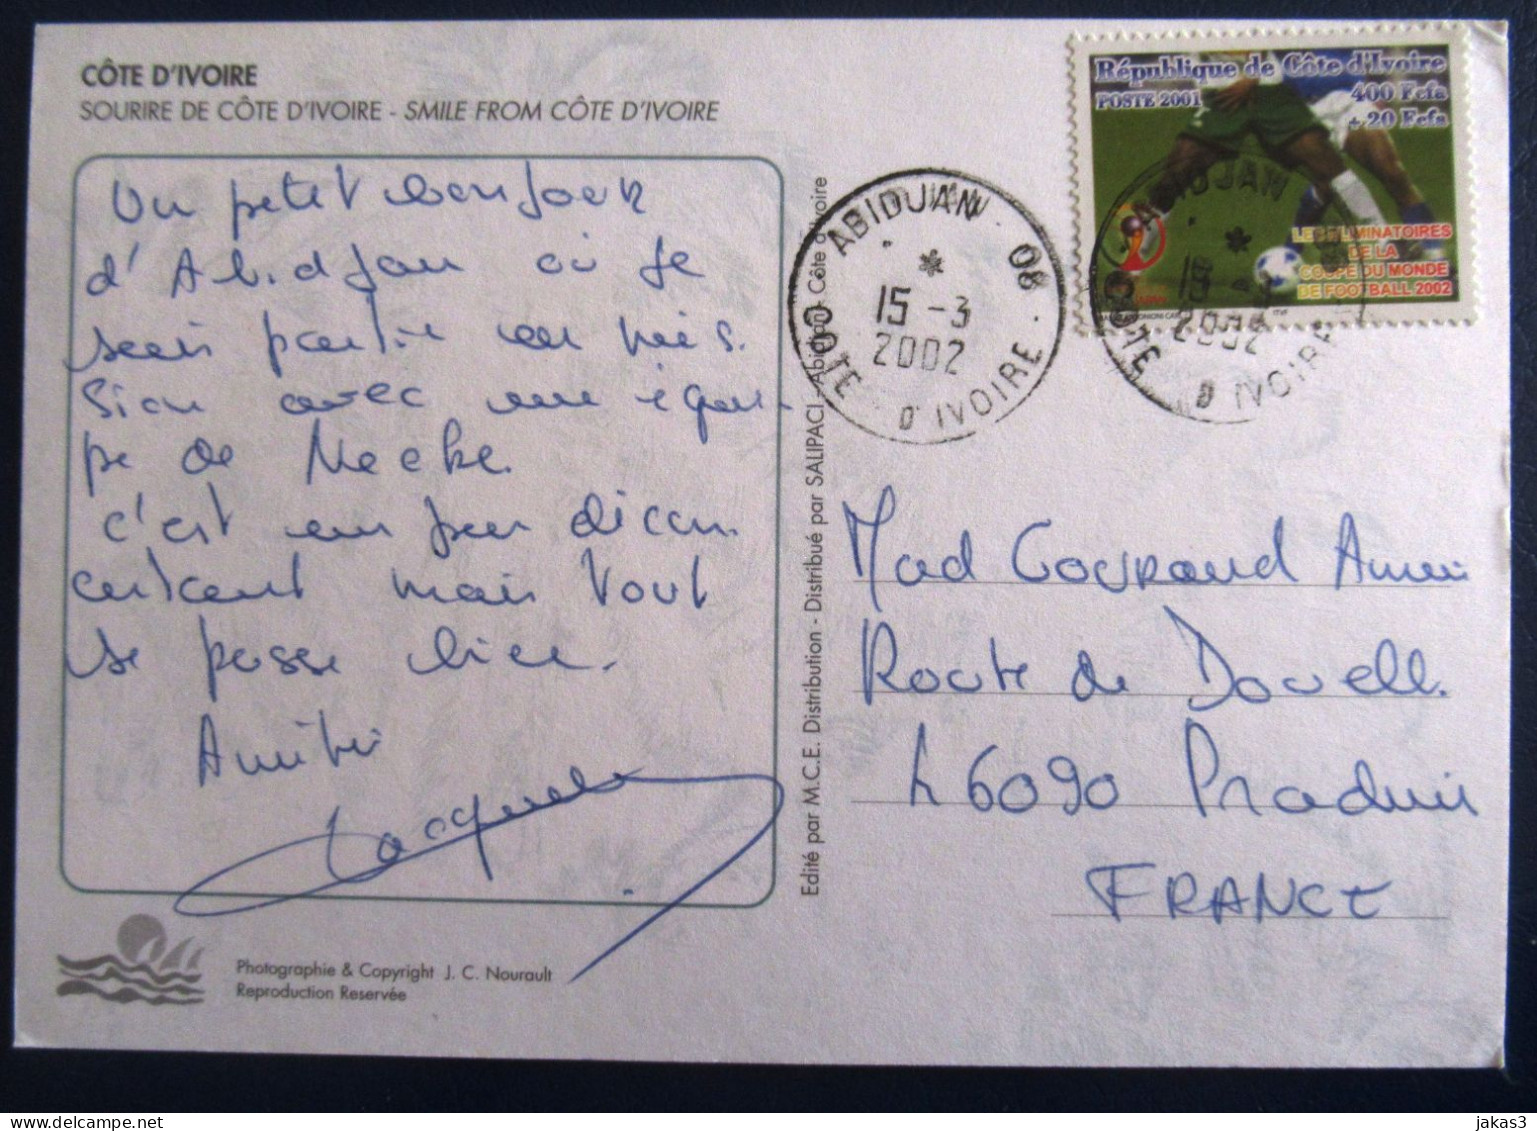 CÔTE D'IVOIRE
SOURIRE DE CÔTE D'IVOIRE - SMILE FROM CÔTE D'IVOIRE
Un petit bonjour
d'Abidjan où je
suis partie en mis.
sion avec une équi-
pe de
c'est un peu décon.
certant mais tout
se passe bien.
Amitié
Photographie & Copyright J. C. Nourault
Reproduction Reservée
Edité par M.C.E. Distribution - Distribué par SALIPACI - Abidjan - Côte d'Ivoire
ABIDJAN 08
15-3
2002
COTE D'IVOIRE
République de Côte d'Ivoire
POSTE 2001
400 Fcfa
+ 20 Fcfa
LES ELIMINATOIRES
DE LA
COUPE DU MONDE
DE FOOTBALL 2002
ABIDJAN
15
2002
COTE D'IVOIRE
Mad
Route de
46090 Pradines
FRANCE
jakas3